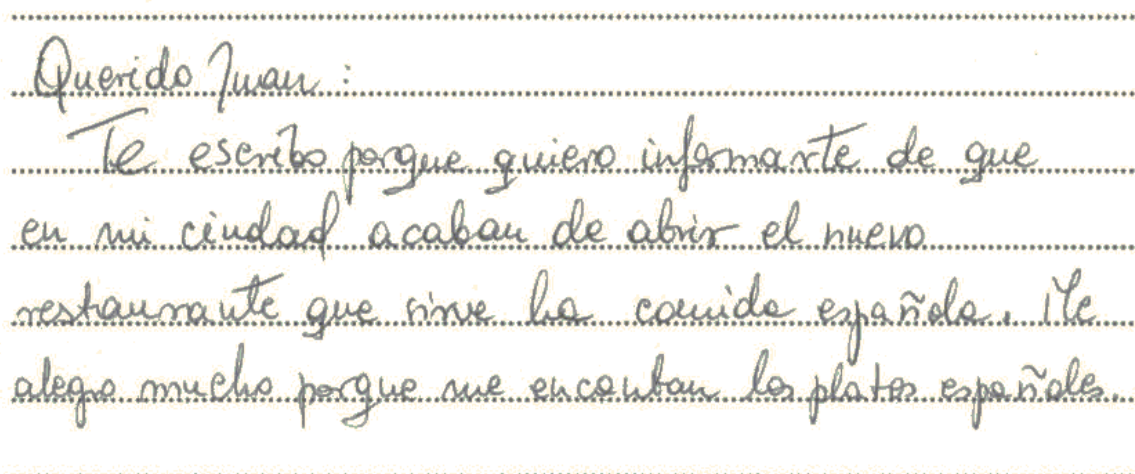 Querido Juan:
Te escribo porque quiero informarte de que
en mi ciudad acaban de abrir el nuevo
restaurante que sirve la comida española. ¡Me
alegro mucho porque me encantan los platos españoles.